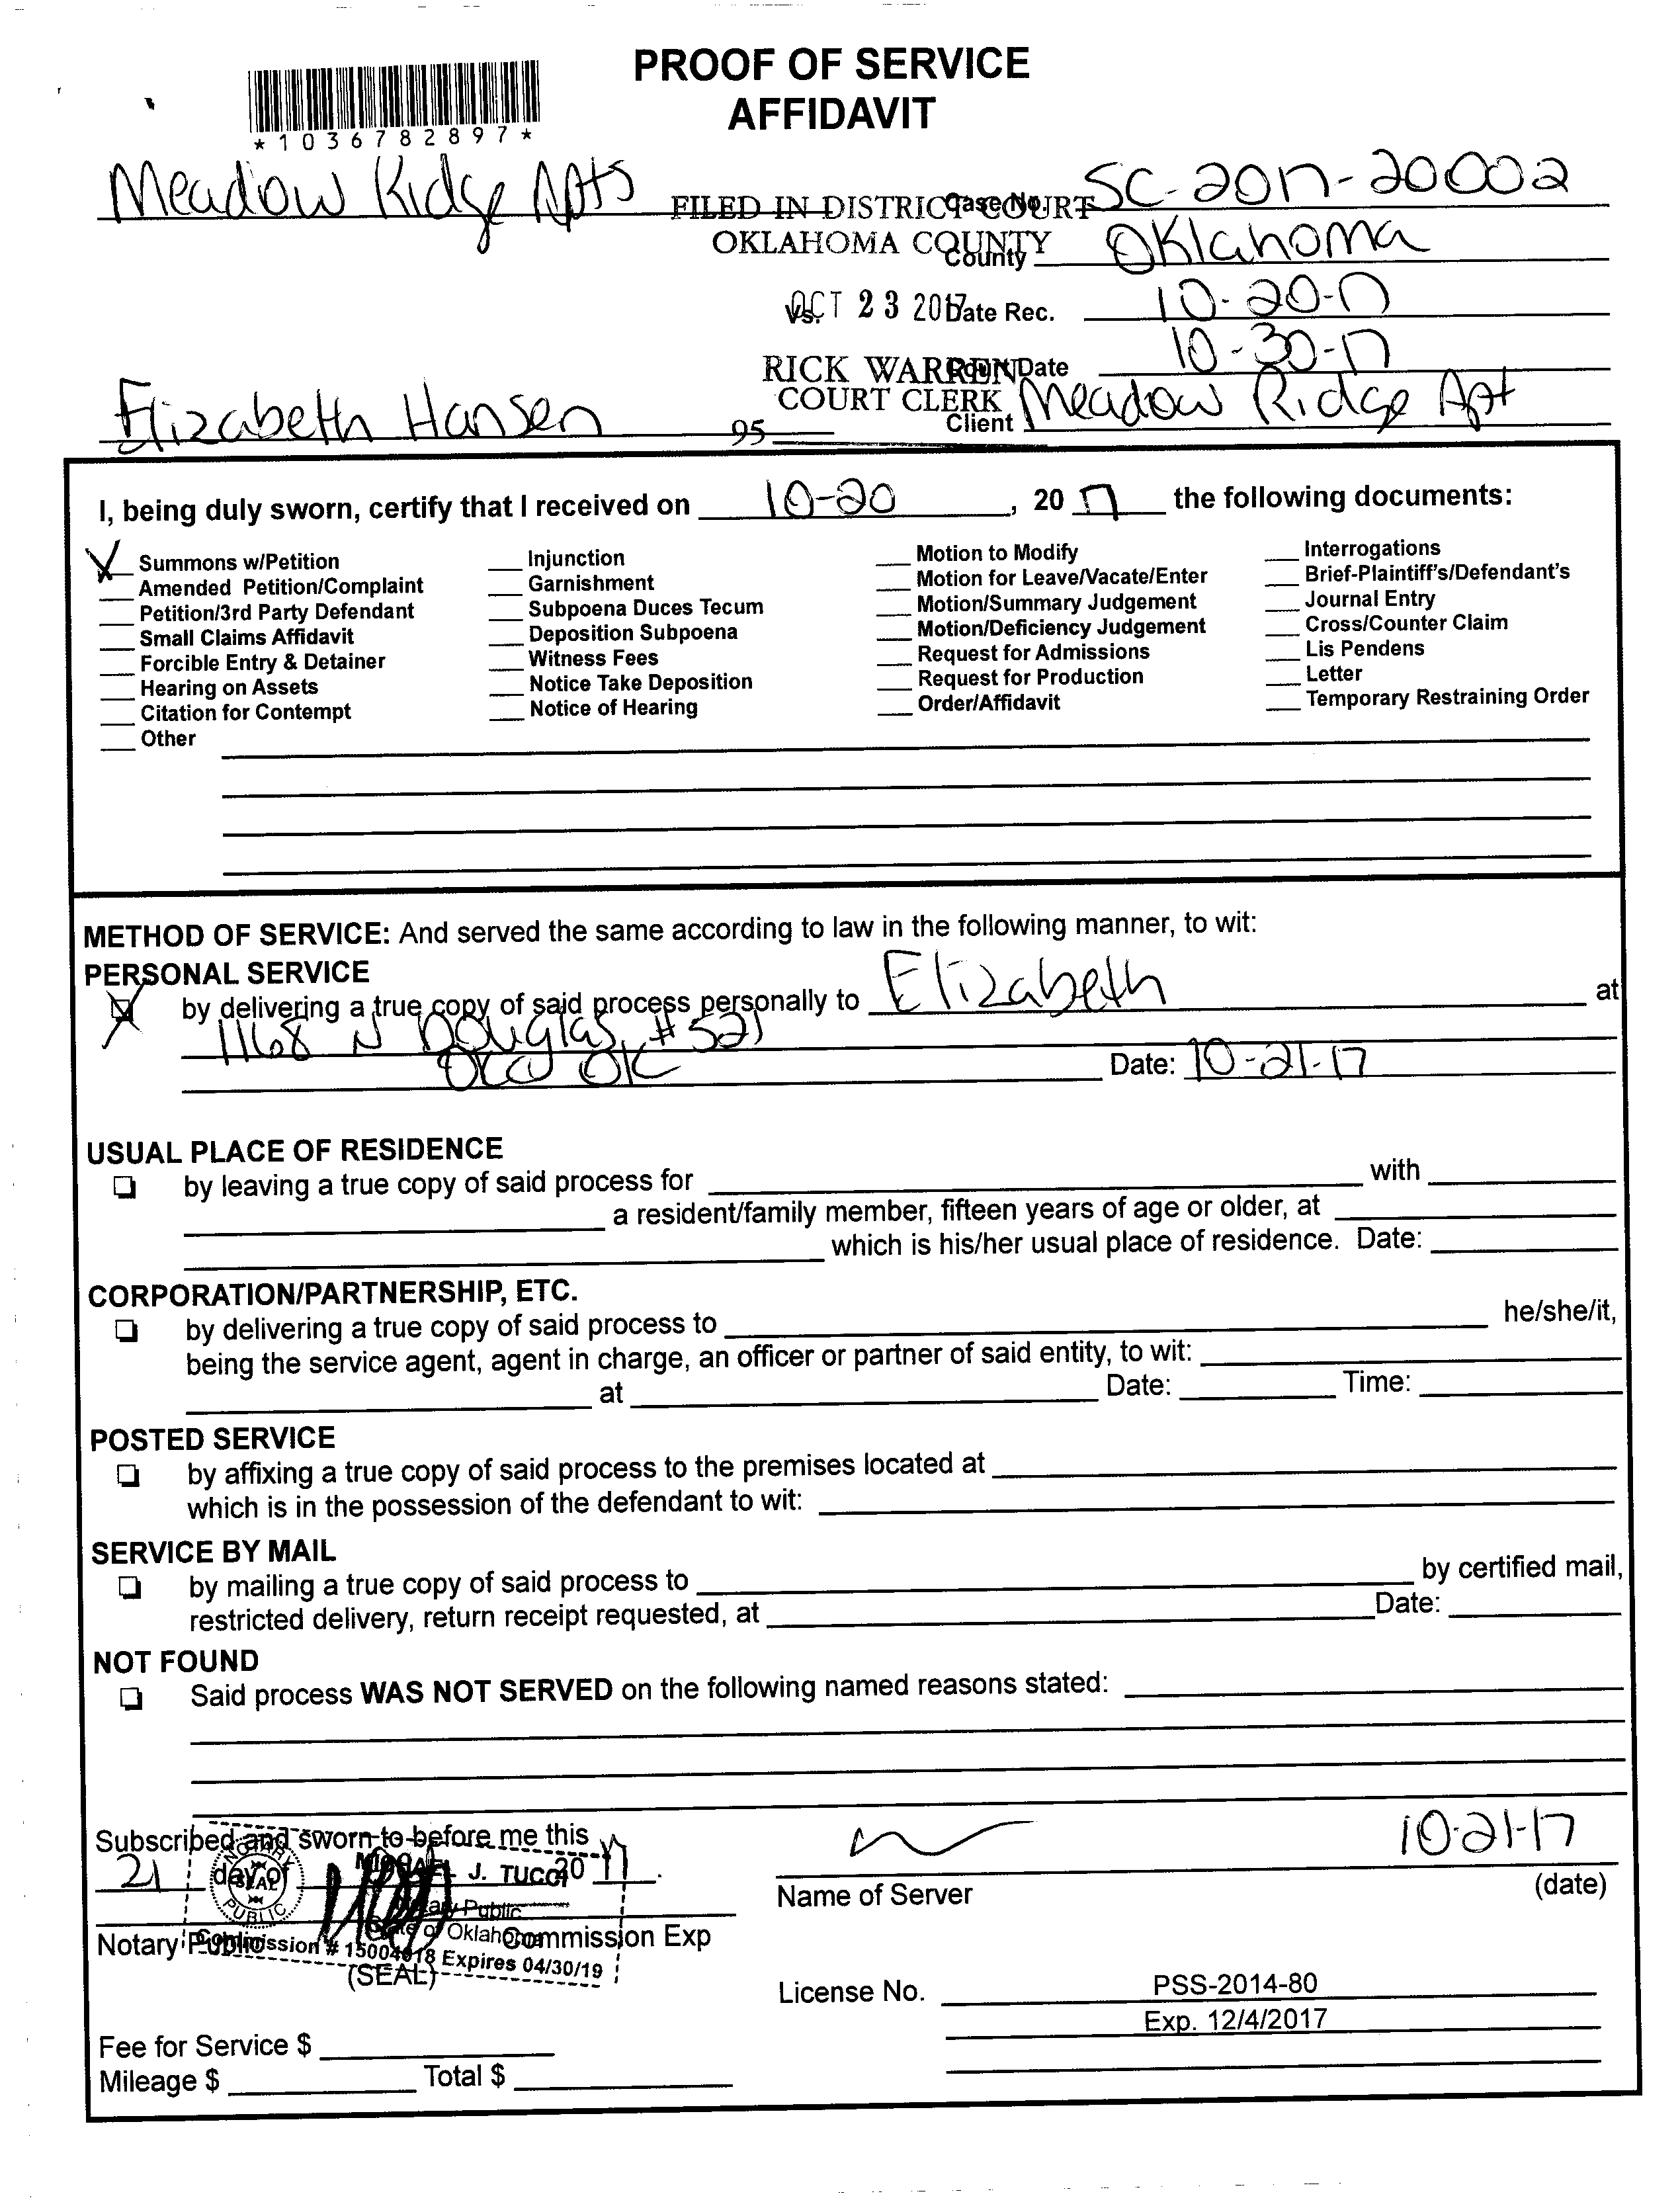 PROOF OF SERVICE
AFFIDAVIT
*1036782897*
Meadow Ridge Apts
FILED IN DISTRICT COURT
Case No. SC-2017-20002
OKLAHOMA COUNTY
County Oklahoma
OCT 23 2017
Vs.
Date Rec. 10-20-17
RICK WARREN
COURT CLERK
Court Date 10-30-17
Elizabeth Hansen
95
Client Meadow Ridge Apt
I, being duly sworn, certify that I received on 10-20, 20 17 the following documents:
X Summons w/Petition
Amended Petition/Complaint
Petition/3rd Party Defendant
Small Claims Affidavit
Forcible Entry & Detainer
Hearing on Assets
Citation for Contempt
Other
Injunction
Garnishment
Subpoena Duces Tecum
Deposition Subpoena
Witness Fees
Notice Take Deposition
Notice of Hearing
Motion to Modify
Motion for Leave/Vacate/Enter
Motion/Summary Judgement
Motion/Deficiency Judgement
Request for Admissions
Request for Production
Order/Affidavit
Interrogations
Brief-Plaintiff's/Defendant's
Journal Entry
Cross/Counter Claim
Lis Pendens
Letter
Temporary Restraining Order
METHOD OF SERVICE: And served the same according to law in the following manner, to wit:
PERSONAL SERVICE
X by delivering a true copy of said process personally to Elizabeth at
1168 N Douglas #521
OKC OK Date: 10-21-17
USUAL PLACE OF RESIDENCE
by leaving a true copy of said process for with
a resident/family member, fifteen years of age or older, at
which is his/her usual place of residence. Date:
CORPORATION/PARTNERSHIP, ETC.
by delivering a true copy of said process to he/she/it,
being the service agent, agent in charge, an officer or partner of said entity, to wit:
at Date: Time:
POSTED SERVICE
by affixing a true copy of said process to the premises located at
which is in the possession of the defendant to wit:
SERVICE BY MAIL
by mailing a true copy of said process to by certified mail,
restricted delivery, return receipt requested, at Date:
NOT FOUND
Said process WAS NOT SERVED on the following named reasons stated:
Subscribed and sworn to before me this
21 day of 20 17.
NOTARY PUBLIC SEAL
MICHAEL J. TUCCI
Notary Public
State of Oklahoma
Commission # 15004018 Expires 04/30/19
Notary Public Commission Exp
(SEAL)
10-21-17
Name of Server (date)
License No. PSS-2014-80
Exp. 12/4/2017
Fee for Service $
Mileage $ Total $